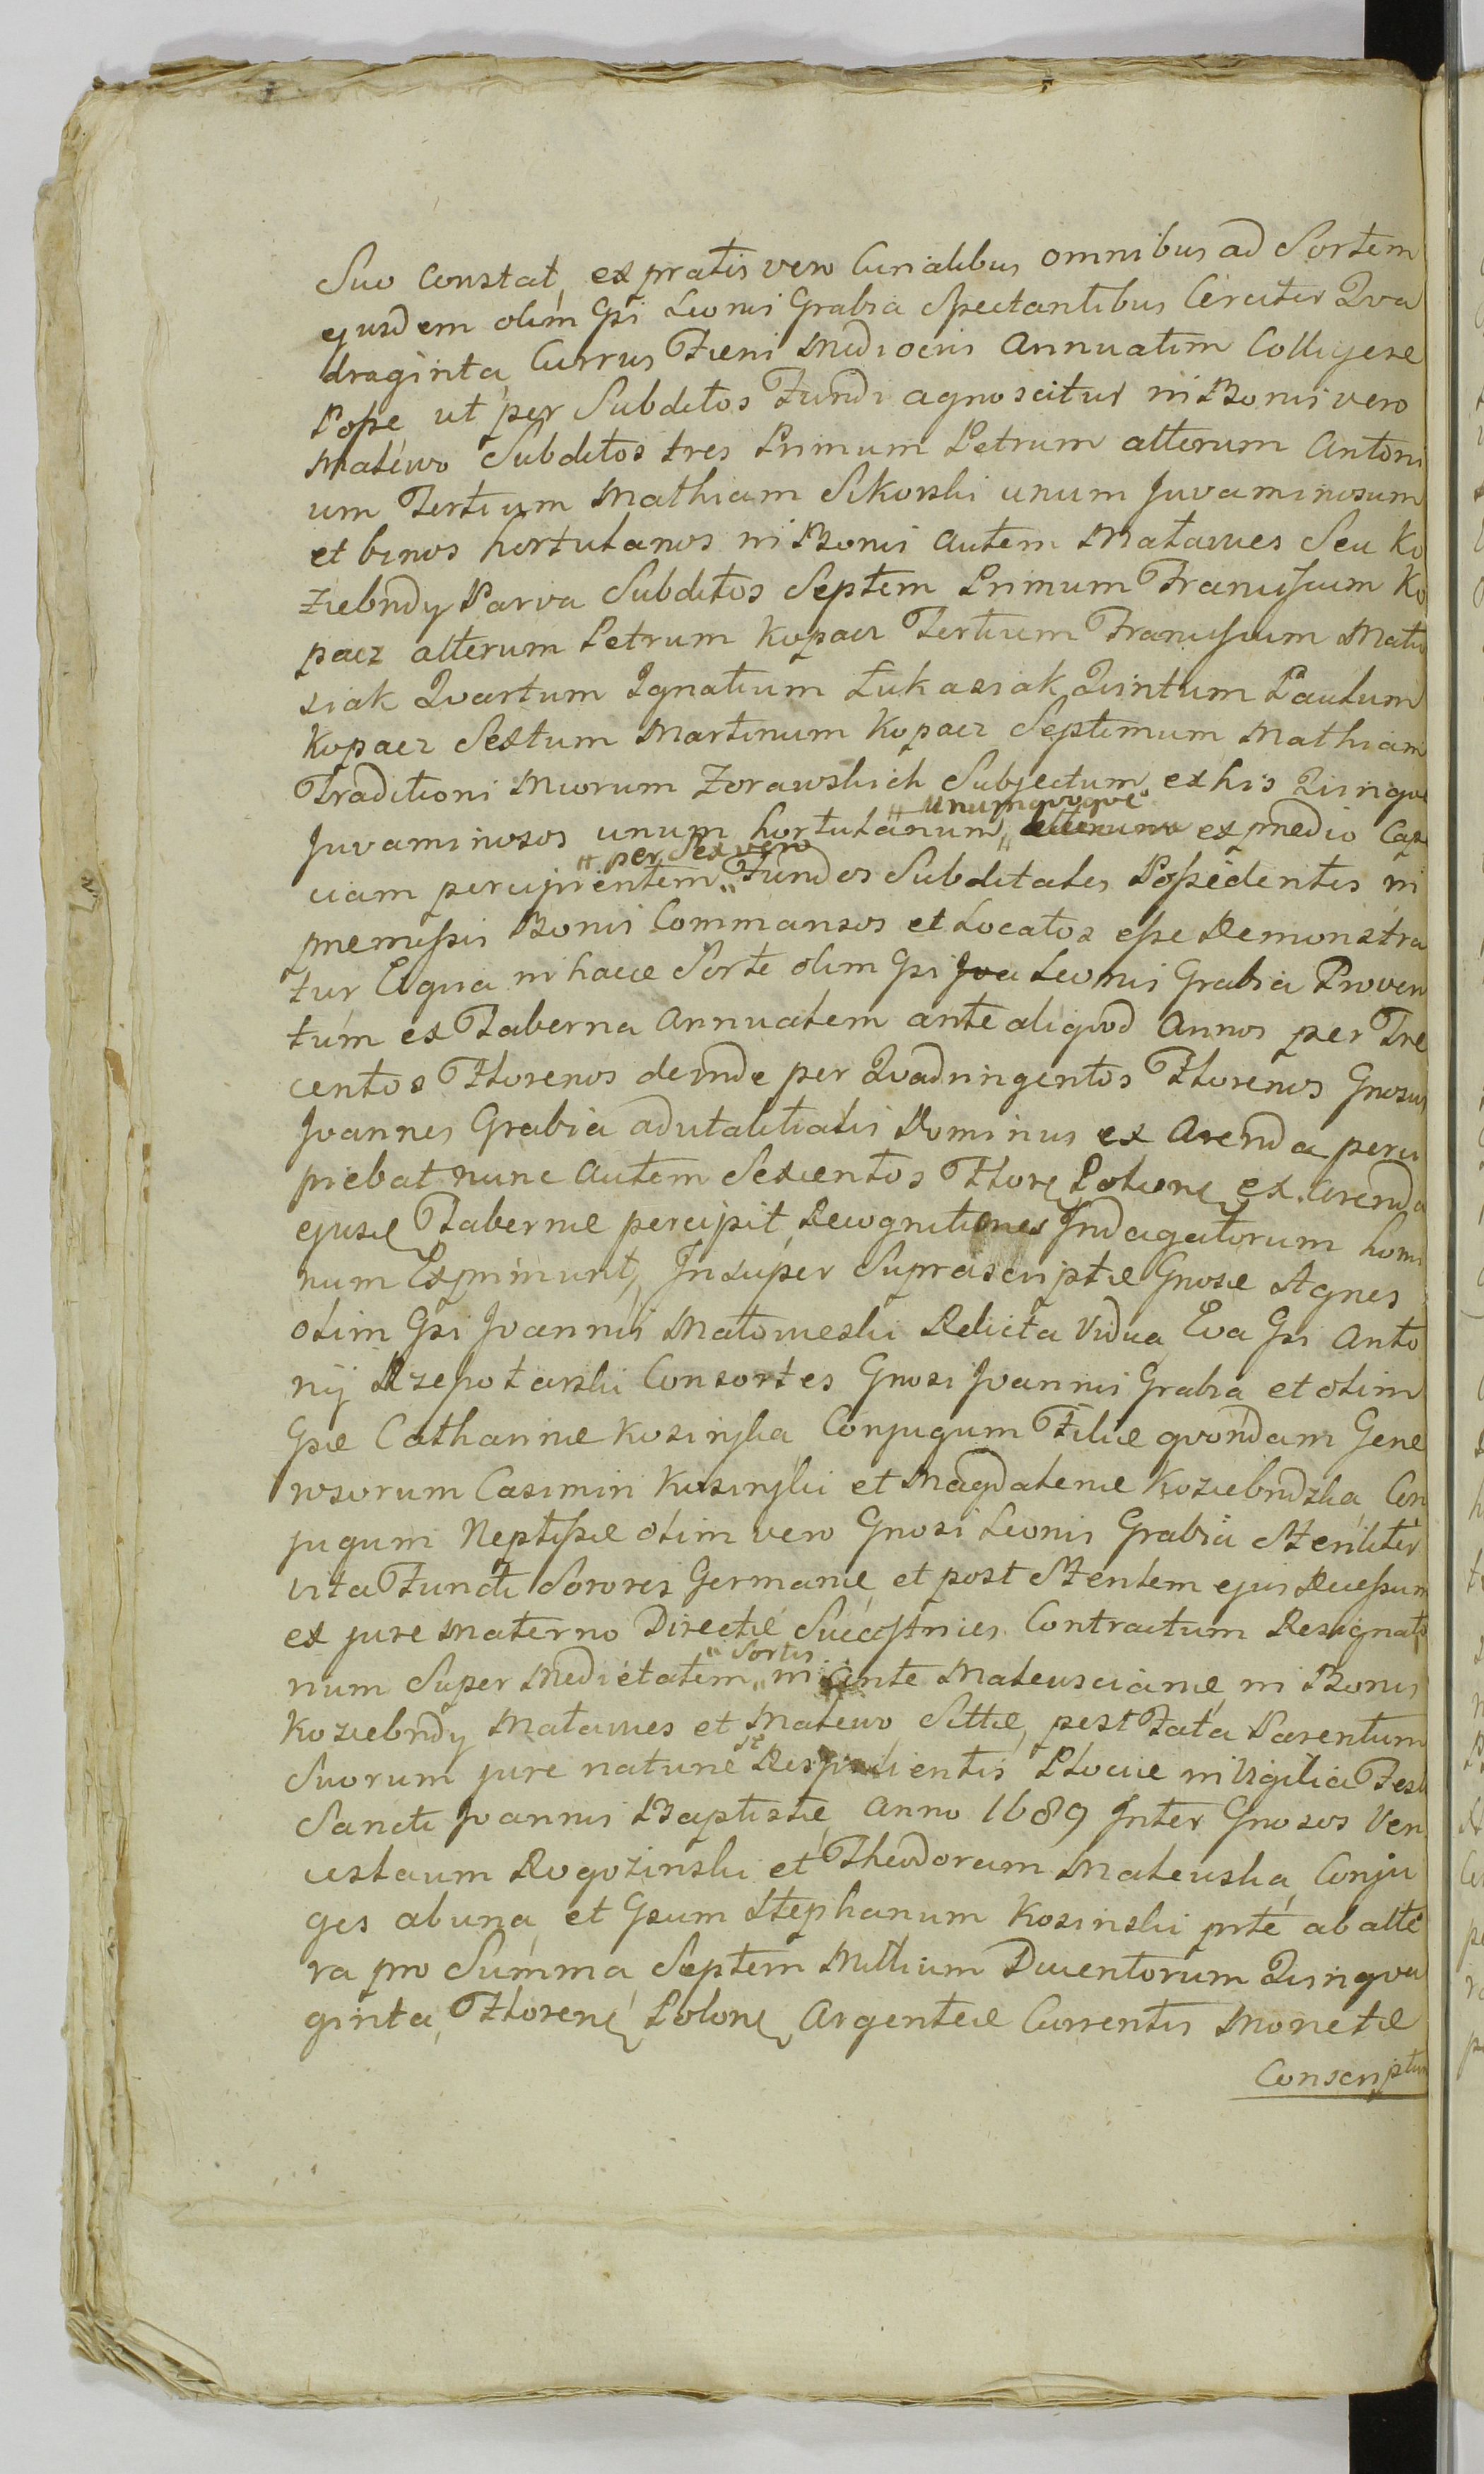 Suo Constat, ex pratis vero Curialibus omnibus ad Sortem
ejusdem olim Gsi Leonis Grabia Spectantibus Circiter Qva
draginta Currus Fæni Mediocris Annuatim Colligere
Posse ut per Subditos Fundi agnoscitur in Bonis vero
Malewo Subditos tres Primum Petrum alterum Antoni
um Tertium Mathiam Sikorski unum Juvaminosum
et binos hortulanos in Bonis autem Matawes Seu Ko
ziebrody Parva Subditos Septem Primum Franciscum Ko
pacz alterum Petrum Kopacz Tertium Franciscum Matu
siak Qvartum Ignatium Łukasiak Qvintum Paulum
Kopacz Sextum Martinum Kopacz Septimum Mathiam
Traditioni Mcorum Zorawskich Subjectum ex his Qvinqve
Juvaminosos unum hortulanum „ unumqvoqve “ ex prædio
ciam percipientem „ per Sex vero “ Fundos Subditales Possidentes in
præmissis Bonis Commansos et Locatos esse Demonstra
tur Eqva in hacce Sorte olim Gsi Leonis Grabia Proven
tum ex Taberna Annuatem ante aliqvod Annos per Tre
centos Florenos deinde per Qvadringentos Florenos Gnosus
Joannes Grabia advitalitialis Dominus ex Arenda perci
piebat nunc autem Sexcentos Flore Polone ex Arenda
ejusd Tabernæ percipit Recognitiones Indagatorum homi
num Exprimunt, Insuper Suprascriptæ Gnosæ Agnes
olim Gsi Joannis Matowieski Relicta Vidua Eva Gsi Anto
nij Rzepotarski Consortes Gnosi Joannis Grabia et olim
Gsæ Catharinæ Kosinska Conjugum Filiæ qvondam Gene
rosorum Casimiri Kosinski et Magdalenæ Koziebrodzka Con
jugum Neptissæ olim vero Gnosi Leonis Grabia Steriliter
vita Functi Sorores Germanæ et post Sterilem ejus Decessum
ex jure Materno Directæ Successtrices Contractum Resignato
rium Super Medietatem „ Sortis “ Mateusciane in Bonis
Koziebrody Matawes et Malewo Sittæ post Fata Parentum
Suorum jure naturæ Respicientis Plociæ in Vigilia Festi
Sancti Joannis Baptistæ Anno 1689 Inter Gnosos Ven
ceslaum Rogozinski et Theodoram Mateuska Conju
ges ab una et Gsum Stephanum Kosinski prte ab alte
ra pro Summa Septem Millium Ducentorum Qvinqva
ginta Florene Polone Argenteæ Currentis Monetæ
Conscriptum